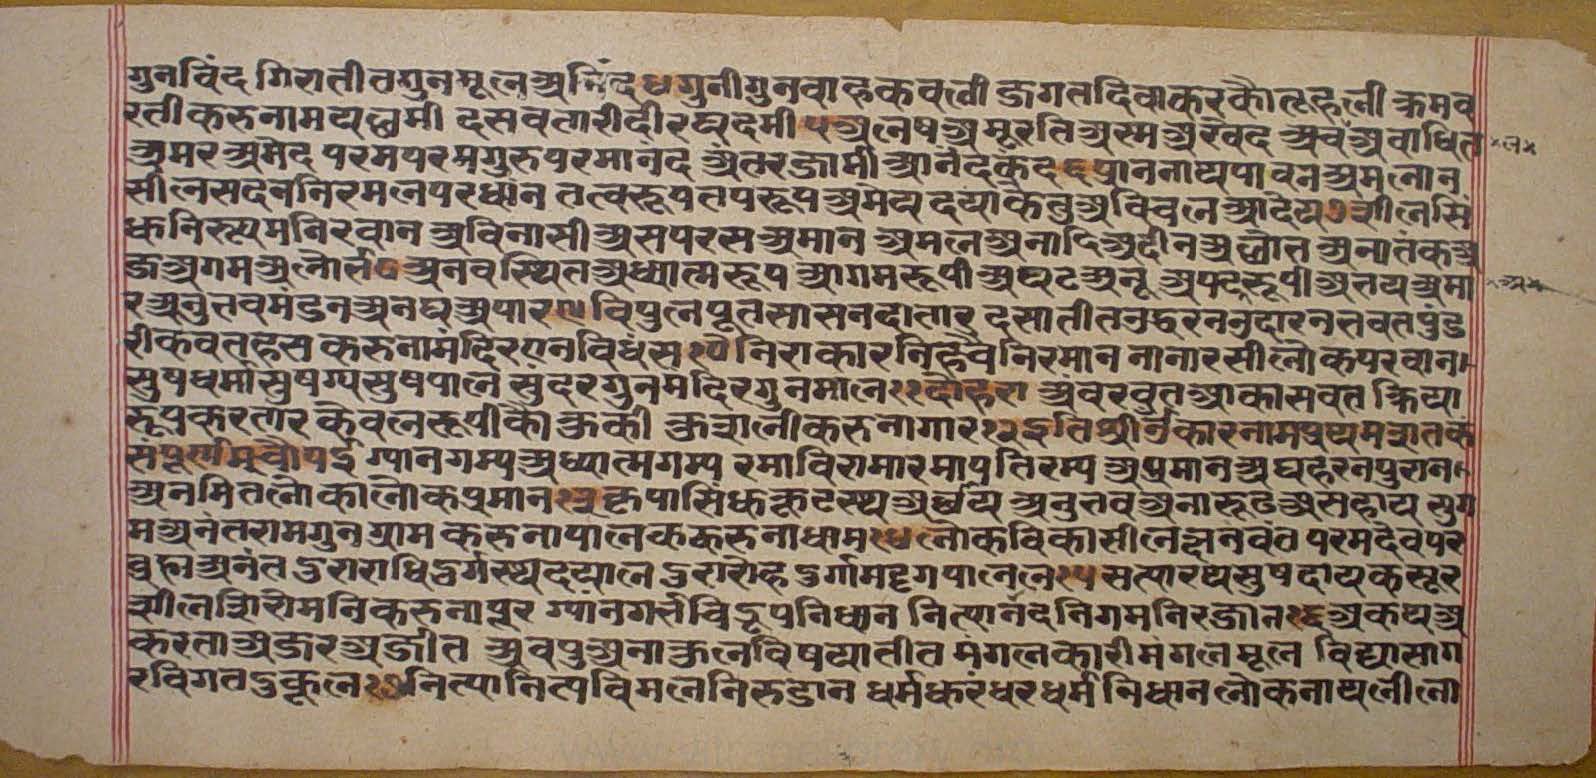 गुनविंद गिरातीतगुनमूलअनिंद ४ गुनीगुनवाहकवली जगतदिवाकरकौतूहली क्रमव
रतीकरुनामयछमी दसवतारीदीरघदमी ५ अलेषअमूरतिअरसअखेद अचलअबाधित
अमरअभेद परमपरमगुरुपरमानंद अंतरजामीआनंदकंद ६ प्राननाथपावनअमलान
सीलसदननिरमलपरधान तत्वरूपतपरूपअमेय दयाकेतुअविचलआदेय ७ शीलसिं
धुनिरुपमनिरवान अविनासीअसपरसअमान अमलअनादिअदीनअछोत अनातंकअ
जअगमअलोत ८ अनवस्थितअध्यात्मरूप आगमरूपीअघटअनू अपटुरूपीअतयअमा
रअनुतवमंडनअनघअपार ९ विपुलपूतसासनदातार दसातीतउद्धरनउदारनतवतपुंड
रीकवतहंस करुनामंदिरएनविधंस १० निराकारनिहचैनिरमान नानारसीलोकपरवान।
सुषधर्मासुषग्यसुषपाल सुंदरगुनमंदिरगुनमाल ११ दोहरा अंबरवतआकासवत क्रिया
रूपकरतार केवलरूपीकौतुकी कुशलीकरुनागार १२ इतिश्रीॐकारनामप्रथमशतकं
संपूर्णम् चौपई ग्यानगम्यअध्यात्मगम्य रमाविरामारमापतिरम्य अप्रमानअघहरनपुरान।
अनमितलोकालोकप्रमान १३ कृपासिंधुकूटस्थअछय अनुतवअनारूढअसहाय सुग
मअनंतरामगुनग्राम करुनापालककरुनाधाम १४ लोकविकासीलछनवंत परमदेवपर
ब्रह्मअनंत दुराराधिदुर्गस्थदयाल दुरारोहदुर्गामदृगपाल १५ सत्यारथसुषदायकसूर
शीलशिरोमनिकरुनापूर ग्यानगर्तविद्रूपनिधान नित्यानंदनिगमनिरजान १६ अकथअ
करताअजरअजीत अवपुअनाकुलविषयातीत मंगलकारीमंगलमूल विद्यासाग
रविगतदुकूल १७ नित्यानित्यविमलनिरुजान धर्मधुरंधरधर्मनिधान लोकनाथलीलो